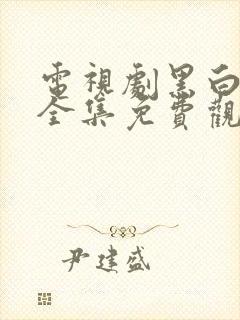 電視劇黑白
全集免費觀
尹建盛